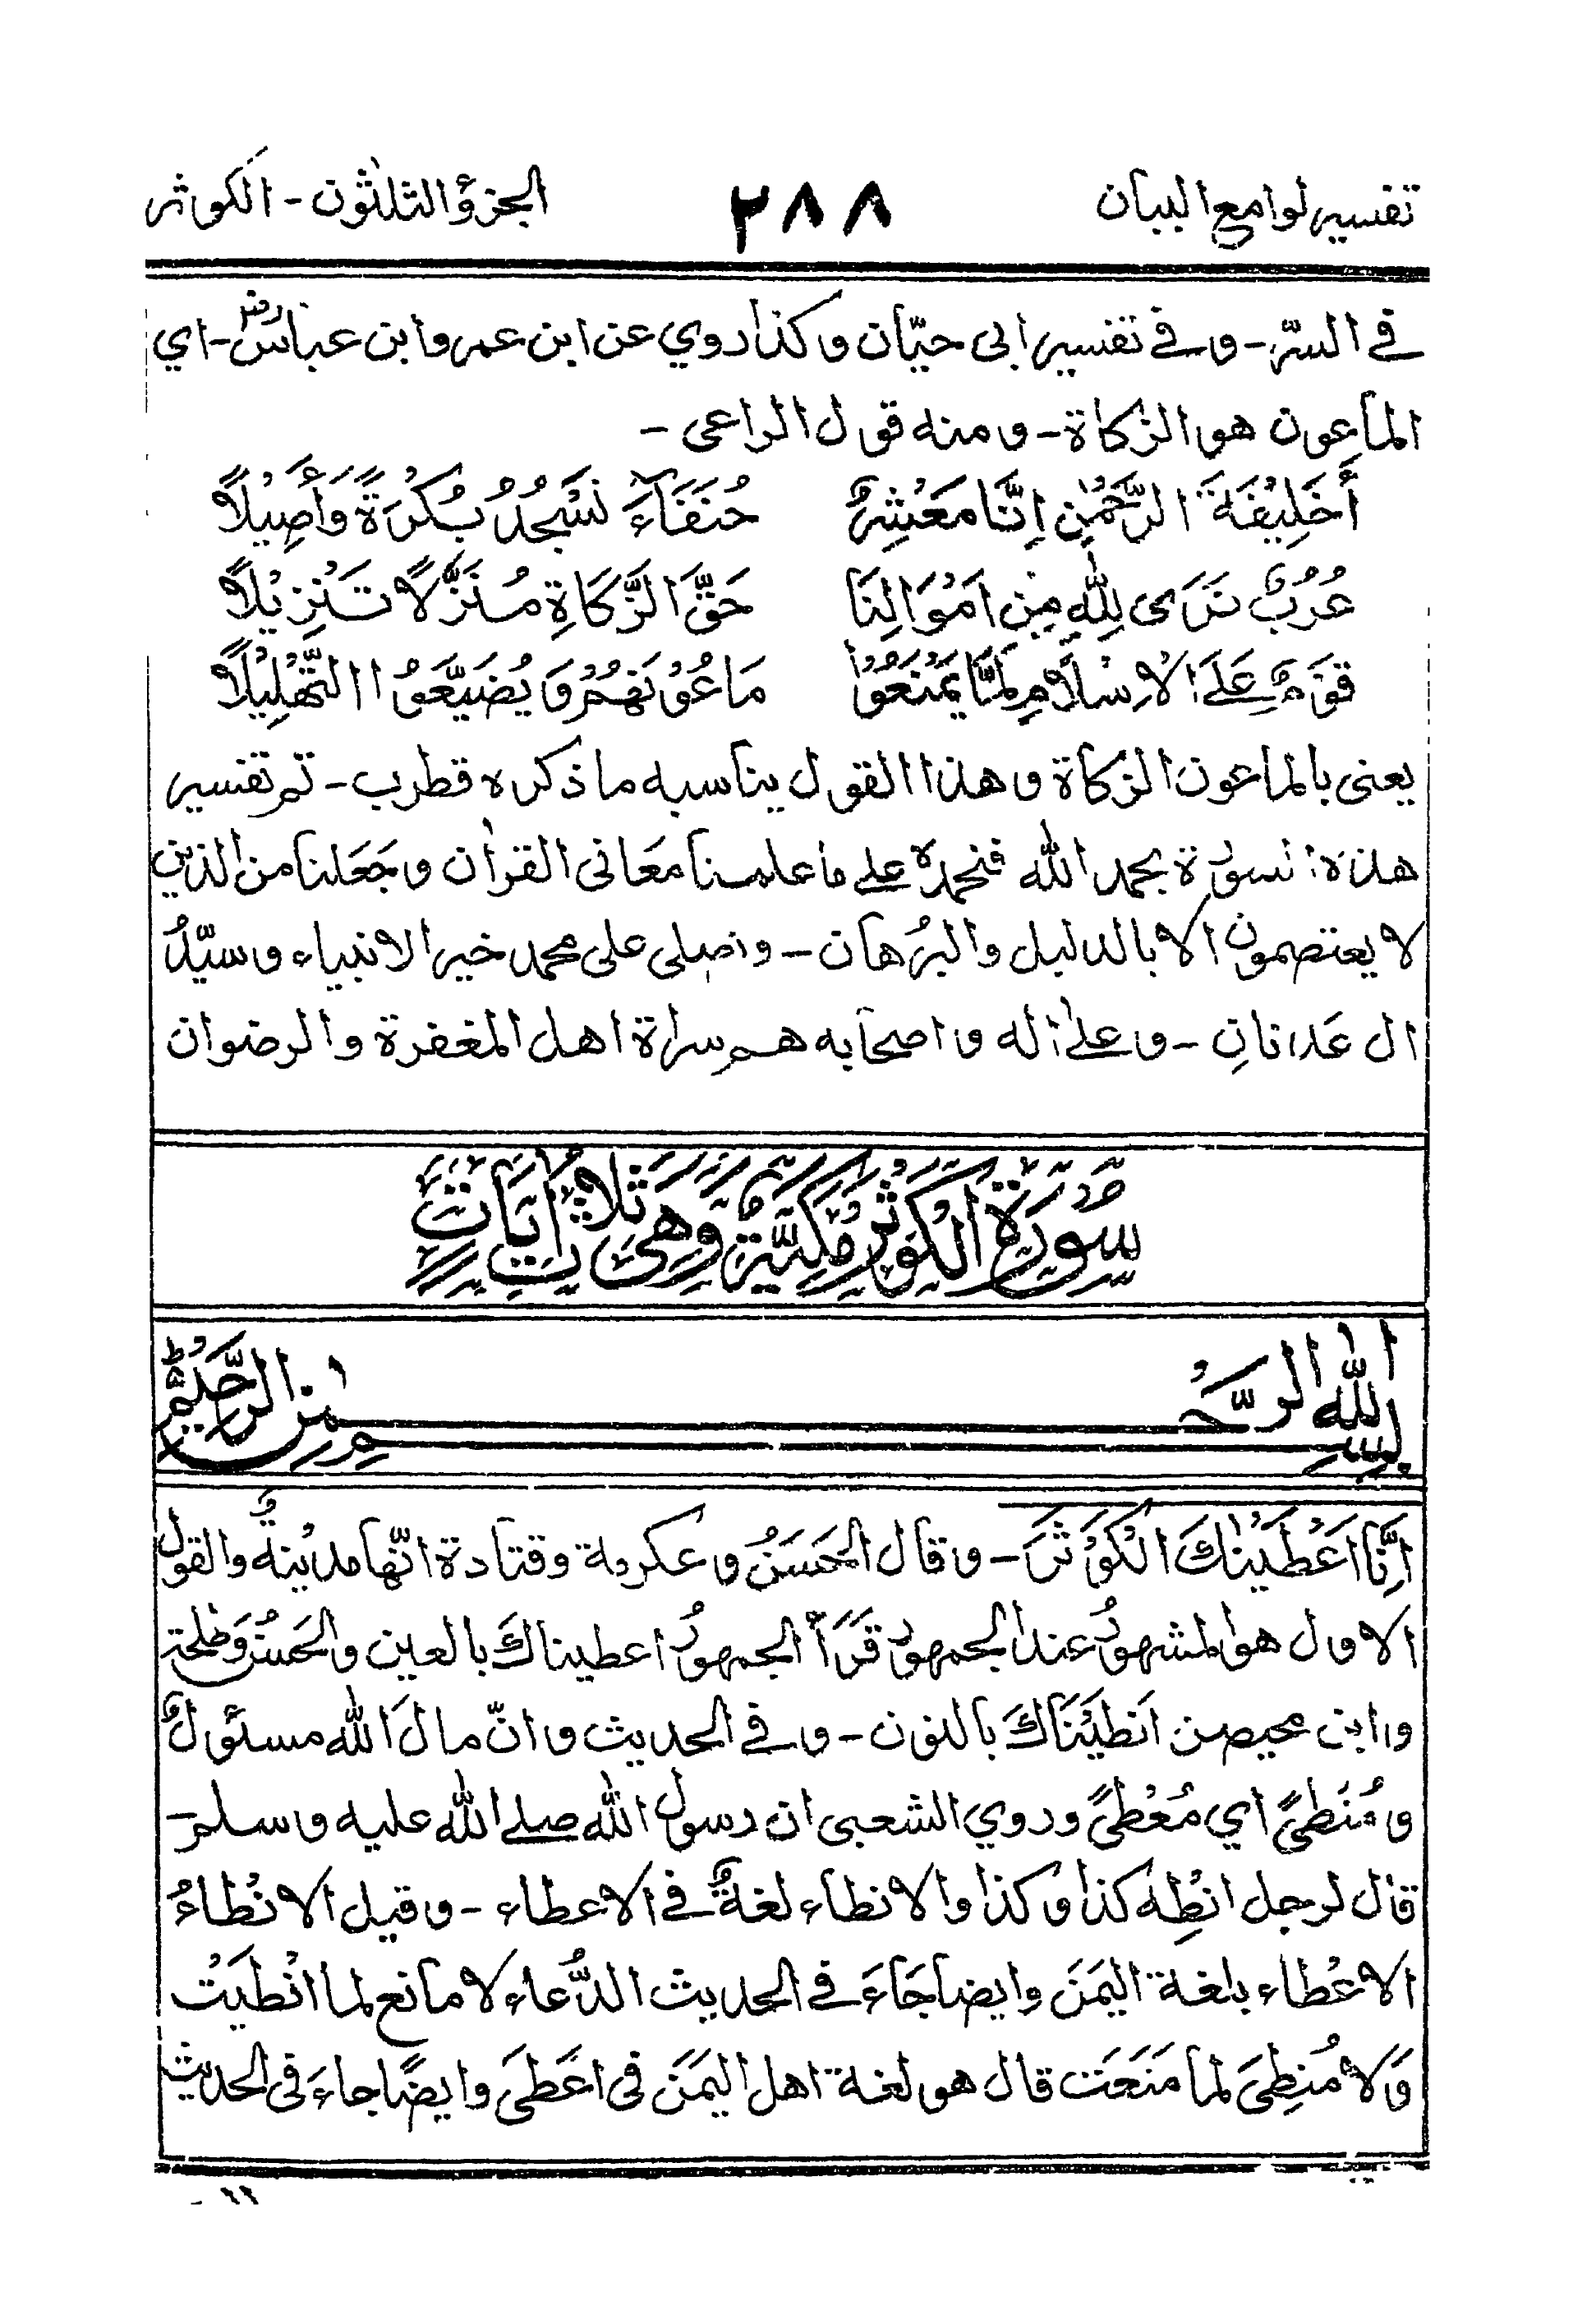 تفسير لوامع البيان ٢٨٨ الجزؤ الثلثون - الكوثر
في السّرّ - و في تفسير ابى حيّان و كذا روي عن ابن عمر و ابن عباس رض - اي
الماعون هو الزكاة - و منه قول الراعى -
أَخَلِيْفَةَ الرَّحْمٰنِ إِنَّا مَعْشِرٌ حُنَفَآءَ نَسْجُدُ بُكْرَةً وَأَصِيْلًا
عُرُبٌ نَرَى لِلّٰهِ مِن اَمْوَالِنَا حَقَّ الزَّكَاةِ مُنَزَّلًا تَنْزِيْلًا
قَوْمٌ عَلَى الْاِسْلَامِ لَمَّا يَمْنَعُوْا مَاعُوْنَهُمْ وَ يُضَيَّعُوا التَّهْلِيْلًا
يعنى بالماعون الزكاة و هذا القول يناسبه ما ذكره قطرب - تم تفسير
هذه السورة بحمد الله فنحمده على ما علمنا معانى القرآن و جَعَلنا من الذين
لا يعتصمون الا بالدليل والبرُهان - و نصلى على محمد خير الانبياء و سيّدُ
ال عَدنانِ - و على اله و اصحابه هم سراة اهل المغفرة والرضوان
سُوْرَةُ الْكَوْثَرِ مَكِيَّةٌ وَهِىَ ثَلَاثُ اٰيَاتٍ
بِسْمِ اللهِ الرَّحْمٰنِ الرَّحِيْمِ
اِنَّا اَعْطَيْنٰكَ الْكَوْثَرَ - و قال الحَسَنُ و عكرمة وقتادة انّها مدنِيْنةٌ والقول
الاول هو المشهورُ عند الجمهور قَرَأَ الجمهورُ اعطيناكَ بالعين والحَسنُ وَطلحة
وابن محيصن اَنطَيْنَاكَ بالنون - و في الحديث و انّ مالَ الله مسئولٌ
و مُنْطىً اي مُعْطىً وروي الشعبى ان رسول الله صلى الله عليه و سلم -
قال لرجل انْطِهْ كذا وكذا والانطاء لغةٌ في الاعطاء - و قيل الانْطاءُ
الاعْطاء بلغة اليَمَنَ وايضا جَاءَ في الحديث الدُّعاء لا مانع لما انْطَيَتْ
وَلا مُنطِىَ لما مَنَعَت قال هو لغة اهل اليَمَنَ فى اعَطىَ وايضًا جاءَ فى الحديث